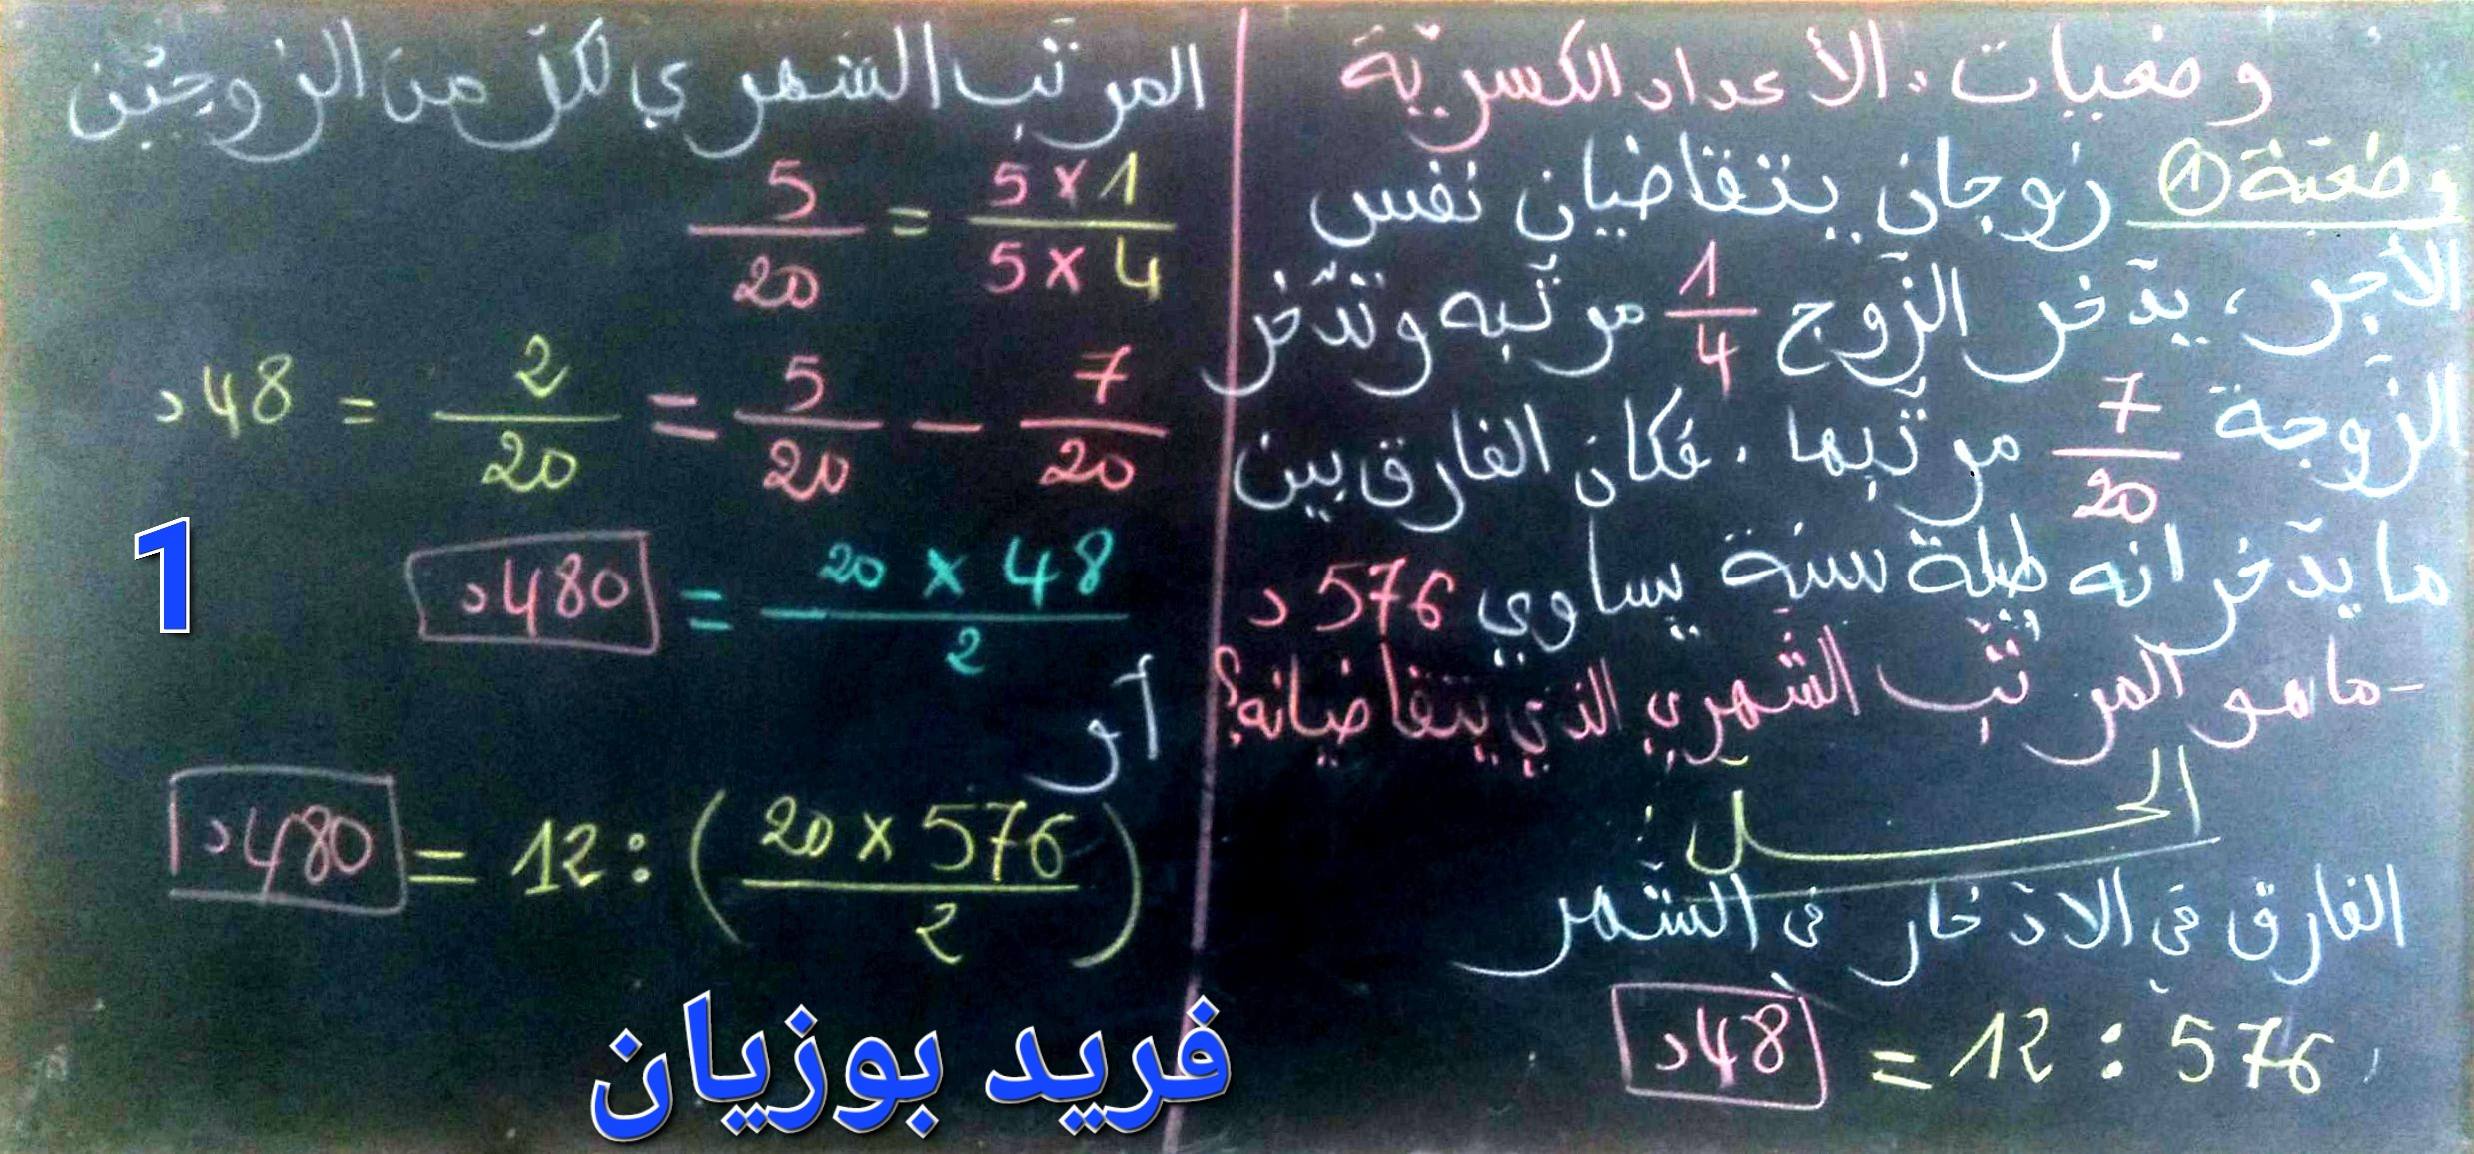 وضعيات: الأعداد الكسريّة
وضعيّة ① زوجان يتقاضيان نفس
الأجر، يدّخر الزّوج 1/4 مرتّبه وتدّخر
الزّوجة 7/20 مرتّبها. فكان الفارق بين
ما يدّخرانه طيلة سنة يساوي 576 د
- ما هو المرتّب الشّهري الذي يتقاضيانه؟
الحــل:
الفارق في الادّخار في الشّهر
576 : 12 = 48د
المرتّب الشهري لكلّ من الزوجين
5 x 1 / 5 x 4 = 5/20
7/20 - 5/20 = 2/20 = 48 د
48 x 20 / 2 = 480د
أو
(576 x 20 / 2) : 12 = 480د
1
فريد بوزيان